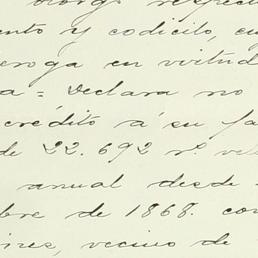 otorgó respecti
ento y codicilo, cu
eroga en virtud
a = Declara no
crédito á su fa
de 22.692 rs vel
anual desde
bre de 1868. con
ires, vecino de